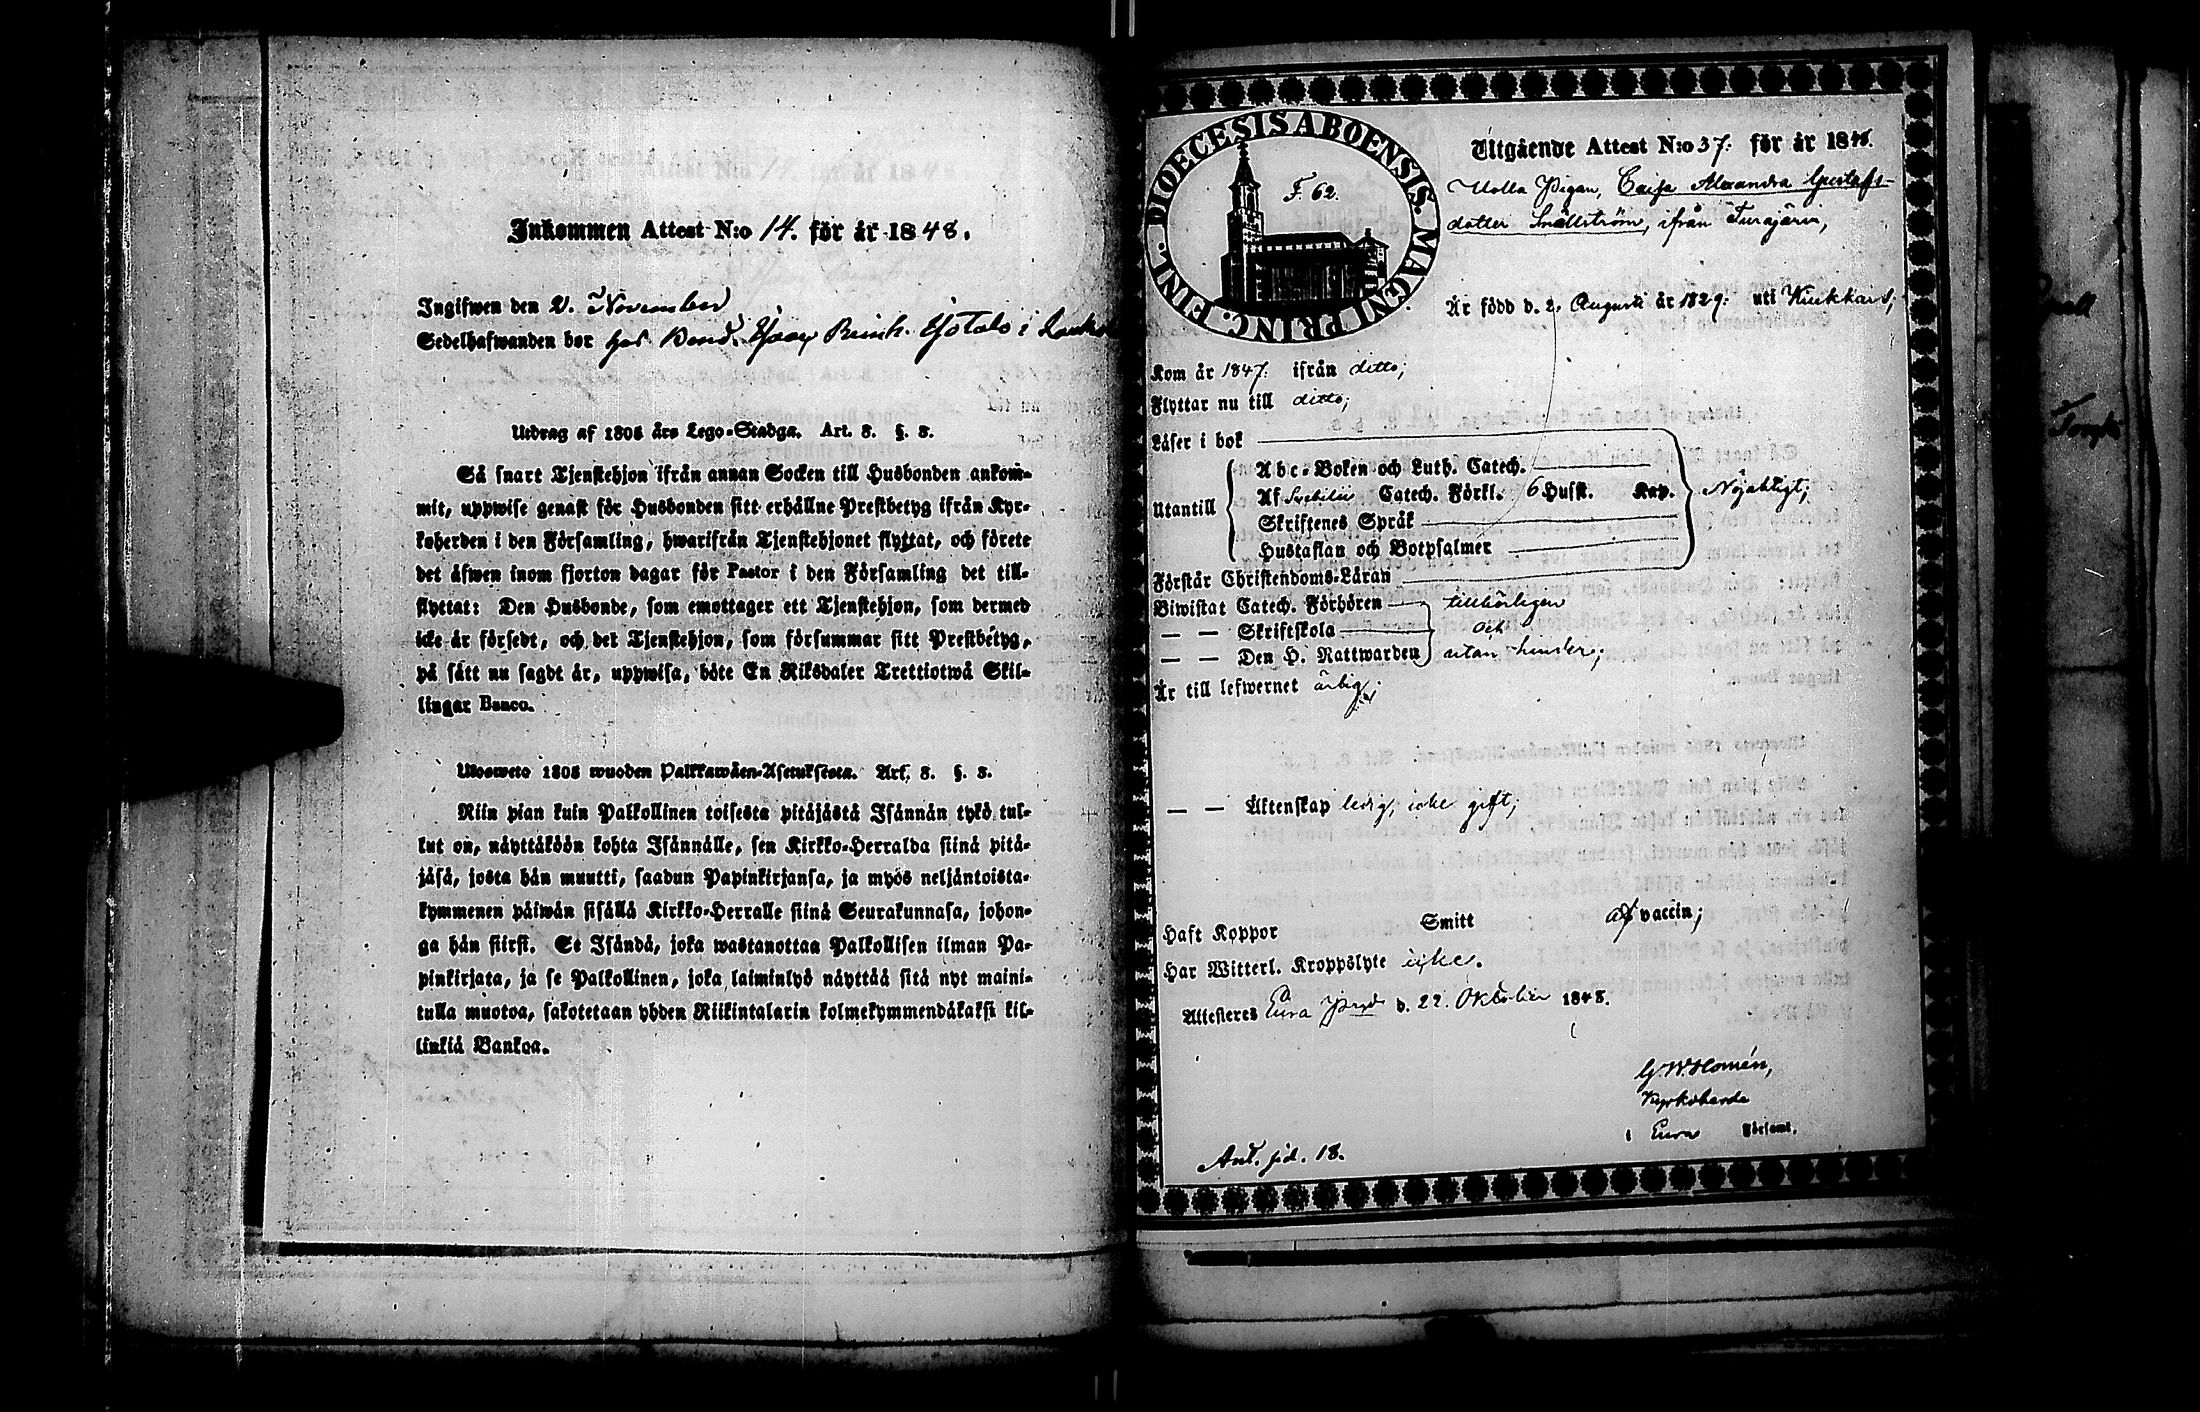 Inkommen Attest N:o 14. för år 1848.
Ingifwen den 2. November
Sedelhafwanden bor hos Bond. Isax Reinh. Isotalo i
Utdrag af 1805 års Lego-Stadga. Art. 8. §. 8.
Så snart Tjenstehjon ifrån annan Socken till Husbonden ankom-
mit, uppwise genast för Husbonden sitt erhållne Prestbetyg ifrån Kyr-
koherden i den Församling, hwarifrån Tjenstehjonet flyttat, och förete
det äfwen inom fjorton dagar för Pastor i den Församling det till-
flyttat: Den Husbonde, som emottager ett Tjenstehjon, som dermed
icke är försedt, och det Tjenstehjon, som försummar sitt Prestbetyg,
på sätt nu sagdt är, uppwisa, böte En Riksdaler Trettiotwå Skil-
lingar Banco.
Ulosweto 1805 wuoden Palkkawäen-Asetuksesta. Art. 8. §. 8.
Niin pian kuin Palkollinen toisesta pitäjästä Isännän tykö tul-
lut on, näyttäköön kohta Isännälle, sen Kirkko-Herralda siinä pitä-
jäsä, josta hän muutti, saadun Papinkirjansa, ja myös neljäntoista-
kymmenen päiwän sisällä Kirkko-Herralle siinä Seurakunnasa, johon-
ga hän siirsi. Se Isändä, joka wastanottaa Palkollisen ilman Pa-
pinkirjata, ja se Palkollinen, joka laiminlyö näyttää sitä nyt maini-
tulla muotoa, sakotetaan yhden Riikintalarin kolmekymmendäkaksi kil-
linkiä Bankoa.
DIOECESIS ABOENSIS. MAGNI PRINC. FINL.
F. 62.
Utgående Attest N:o 37. för år 1848.
Pigan, Caisa Alexandra Gustafs-
dotter Snällström, ifrån Turajärvi,
Är född d. 2. Augusti år 1829. uti Kiukkais,
Kom år 1847. ifrån ditto;
Flyttar nu till ditto;
Läser i bok
Utantill
Abc-Boken och Luth. Catech.
Af Svebilii Catech. Förkl. 6 Hufst. Kap. Nöjaktigt;
Skriftenes Språk
Hustaflan och Botpsalmer
Förstår Christendoms-Läran
Biwistat Catech. Förhören tillbörligen
— — Skriftskola och
— — Den H. Nattwarden utan hinder;
Är till lefwernet ärlig;
— — Äktenskap ledig, icke gift;
Haft Koppor Smitt af vaccin;
Har Witterl. Kroppslyte icke.
Attesteras Eura Prgd d. 22. October 1848.
G. W. Homén,
Kyrkoherde
i Eura Församl.
Ant. sid. 18.